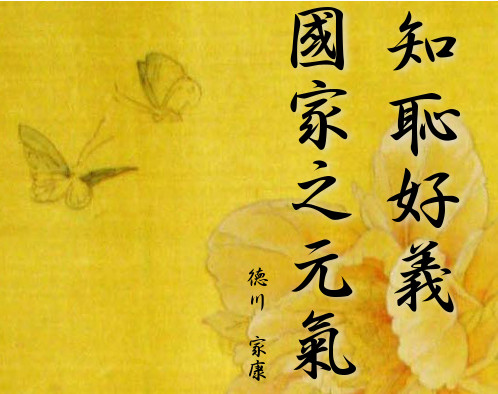 知恥好義
國家之元氣
徳川 家康